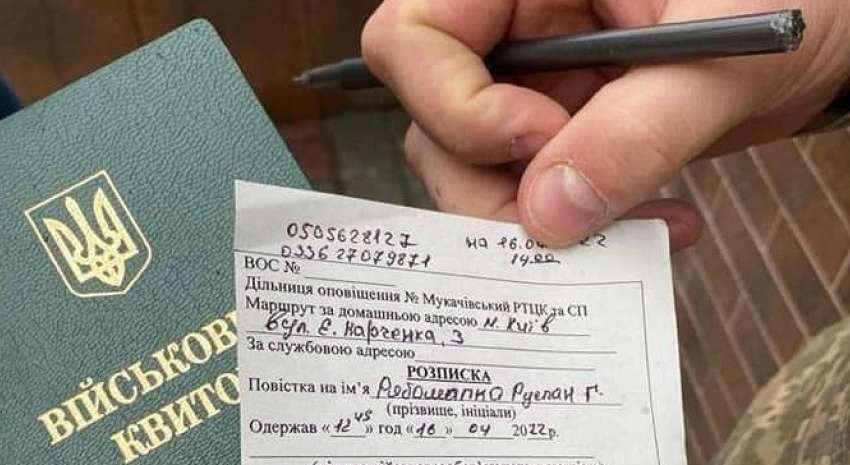 ВІЙСЬКОВ
КВИТО
0505628127 на 16.0 22
0336 27079871 14.00
ВОС №
Дільниця оповіщення № Мукачівський РТЦК та СП
Маршрут за домашньою адресою м. Київ
вул. Є. Харченка, 3
За службовою адресою
РОЗПИСКА
Повістка на ім'я Руслан Г.
(прізвище, ініціали)
Одержав «12 45» год «16» 04 2022р.